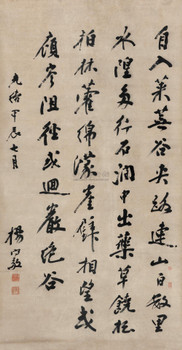 自入萊蕪谷夾路連山百數里
水隍多行石澗中出藥草饒松
柏林藿綿濛崖壁相望或
傾岑阻徑或迴巖絕谷
光緒甲辰七月
楊守敬